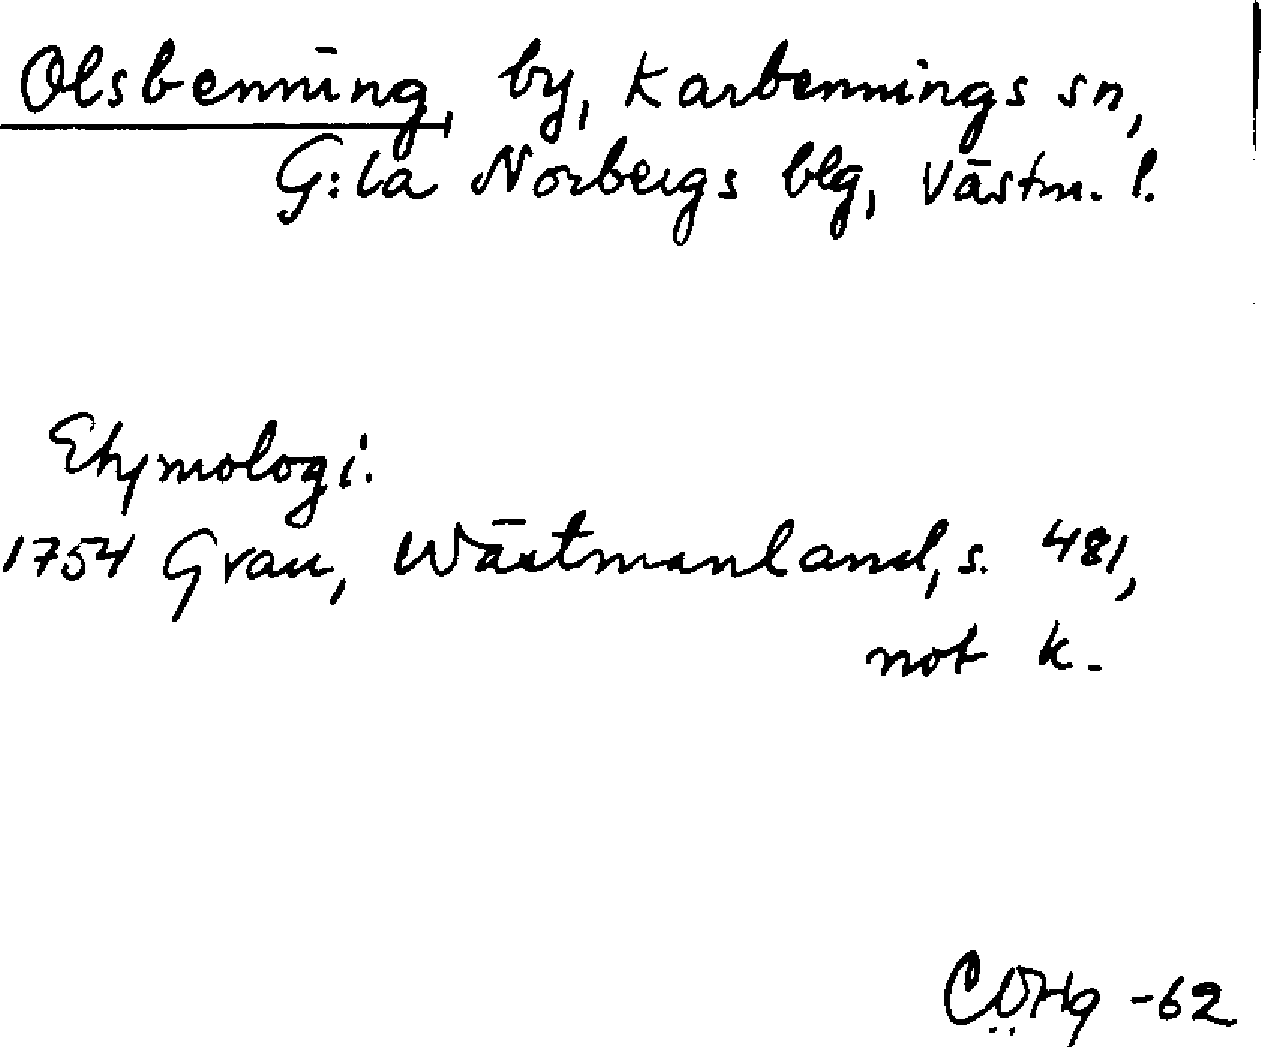 Olsbenning, by, Karbennings sn,
G:la Norbergs blg, Västm. l.
Etymologi.
1754 Grau, Wästmanland, s. 481,
not k.
-62